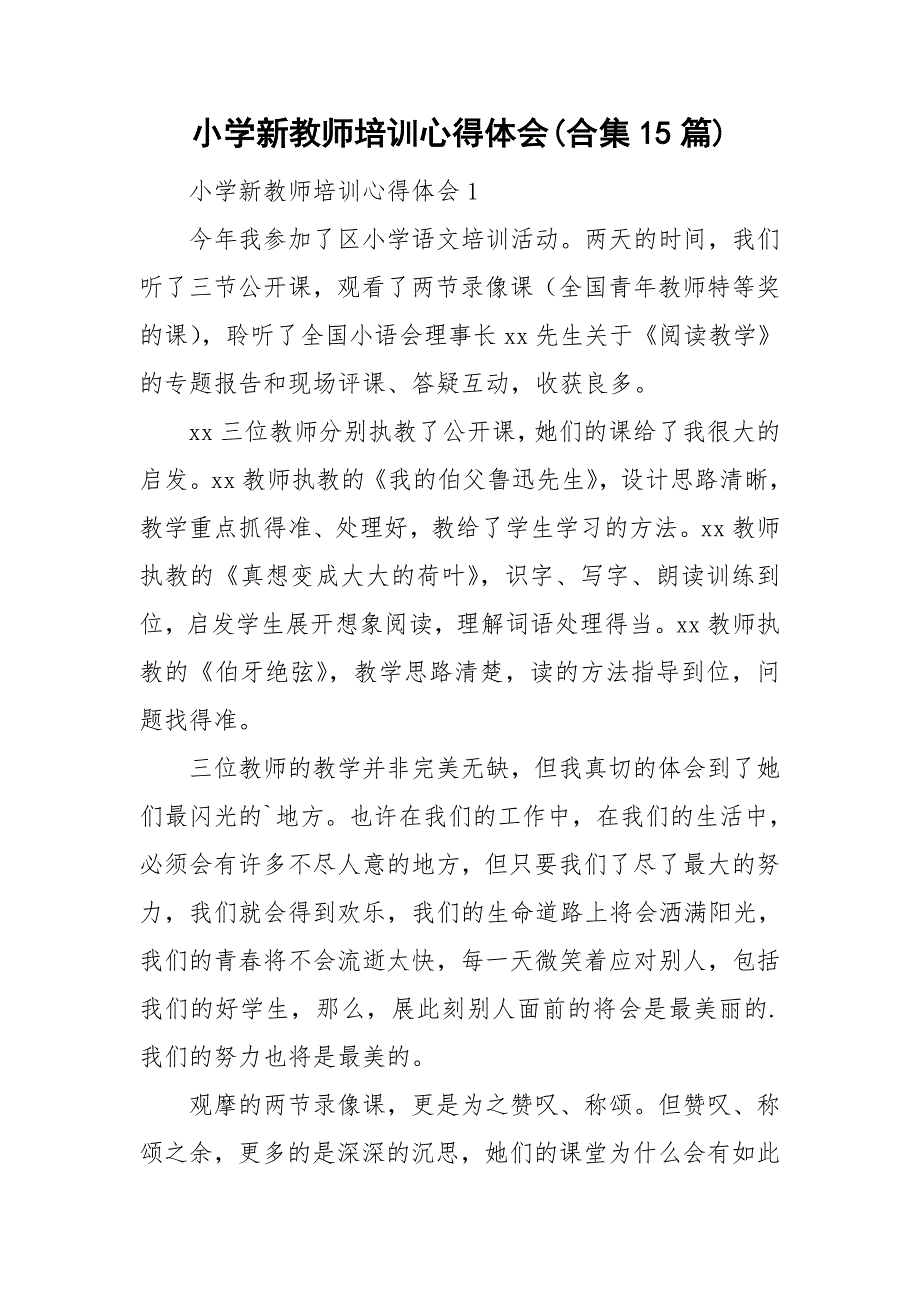 小学新教师培训心得体会(合集15篇)
小学新教师培训心得体会1
今年我参加了区小学语文培训活动。两天的时间，我们
听了三节公开课，观看了两节录像课（全国青年教师特等奖
的课），聆听了全国小语会理事长xx先生关于《阅读教学》
的专题报告和现场评课、答疑互动，收获良多。
xx三位教师分别执教了公开课，她们的课给了我很大的
启发。xx教师执教的《我的伯父鲁迅先生》，设计思路清晰，
教学重点抓得准、处理好，教给了学生学习的方法。xx教师
执教的《真想变成大大的荷叶》，识字、写字、朗读训练到
位，启发学生展开想象阅读，理解词语处理得当。xx教师执
教的《伯牙绝弦》，教学思路清楚，读的方法指导到位，问
题找得准。
三位教师的教学并非完美无缺，但我真切的体会到了她
们最闪光的`地方。也许在我们的工作中，在我们的生活中，
必须会有许多不尽人意的地方，但只要我们了尽了最大的努
力，我们就会得到欢乐，我们的生命道路上将会洒满阳光，
我们的青春将不会流逝太快，每一天微笑着应对别人，包括
我们的好学生，那么，展此刻别人面前的将会是最美丽的.
我们的努力也将是最美的。
观摩的两节录像课，更是为之赞叹、称颂。但赞叹、称
颂之余，更多的是深深的沉思，她们的课堂为什么会有如此